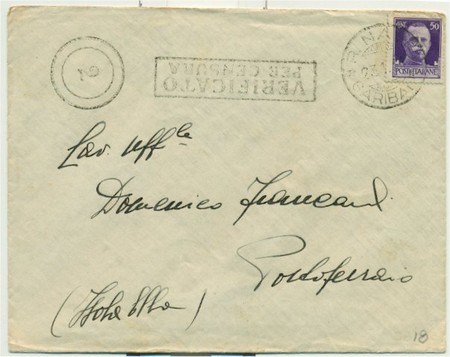 50
POSTE ITALIANE
VERIFICATO
PER CENSURA
Cav. Uff.le
Domenico
Portoferraio
(Isola Elba)
18